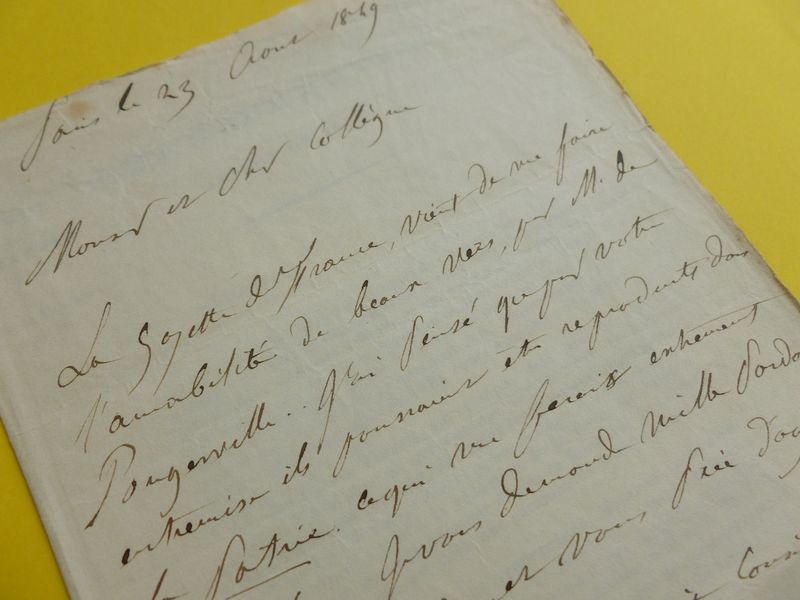 Paris le 23 Aout 1849
Monsr et cher Collègue
La Gazette de France, vient de me faire
l'amabilité de beaux vers, par M. de
Pongerville. J'ai pensé que par votre
entremise ils pourraient etre reproduits dans
la Patrie. ce qui me ferait
Je vous demande mille pardo
et vous prie d'ag